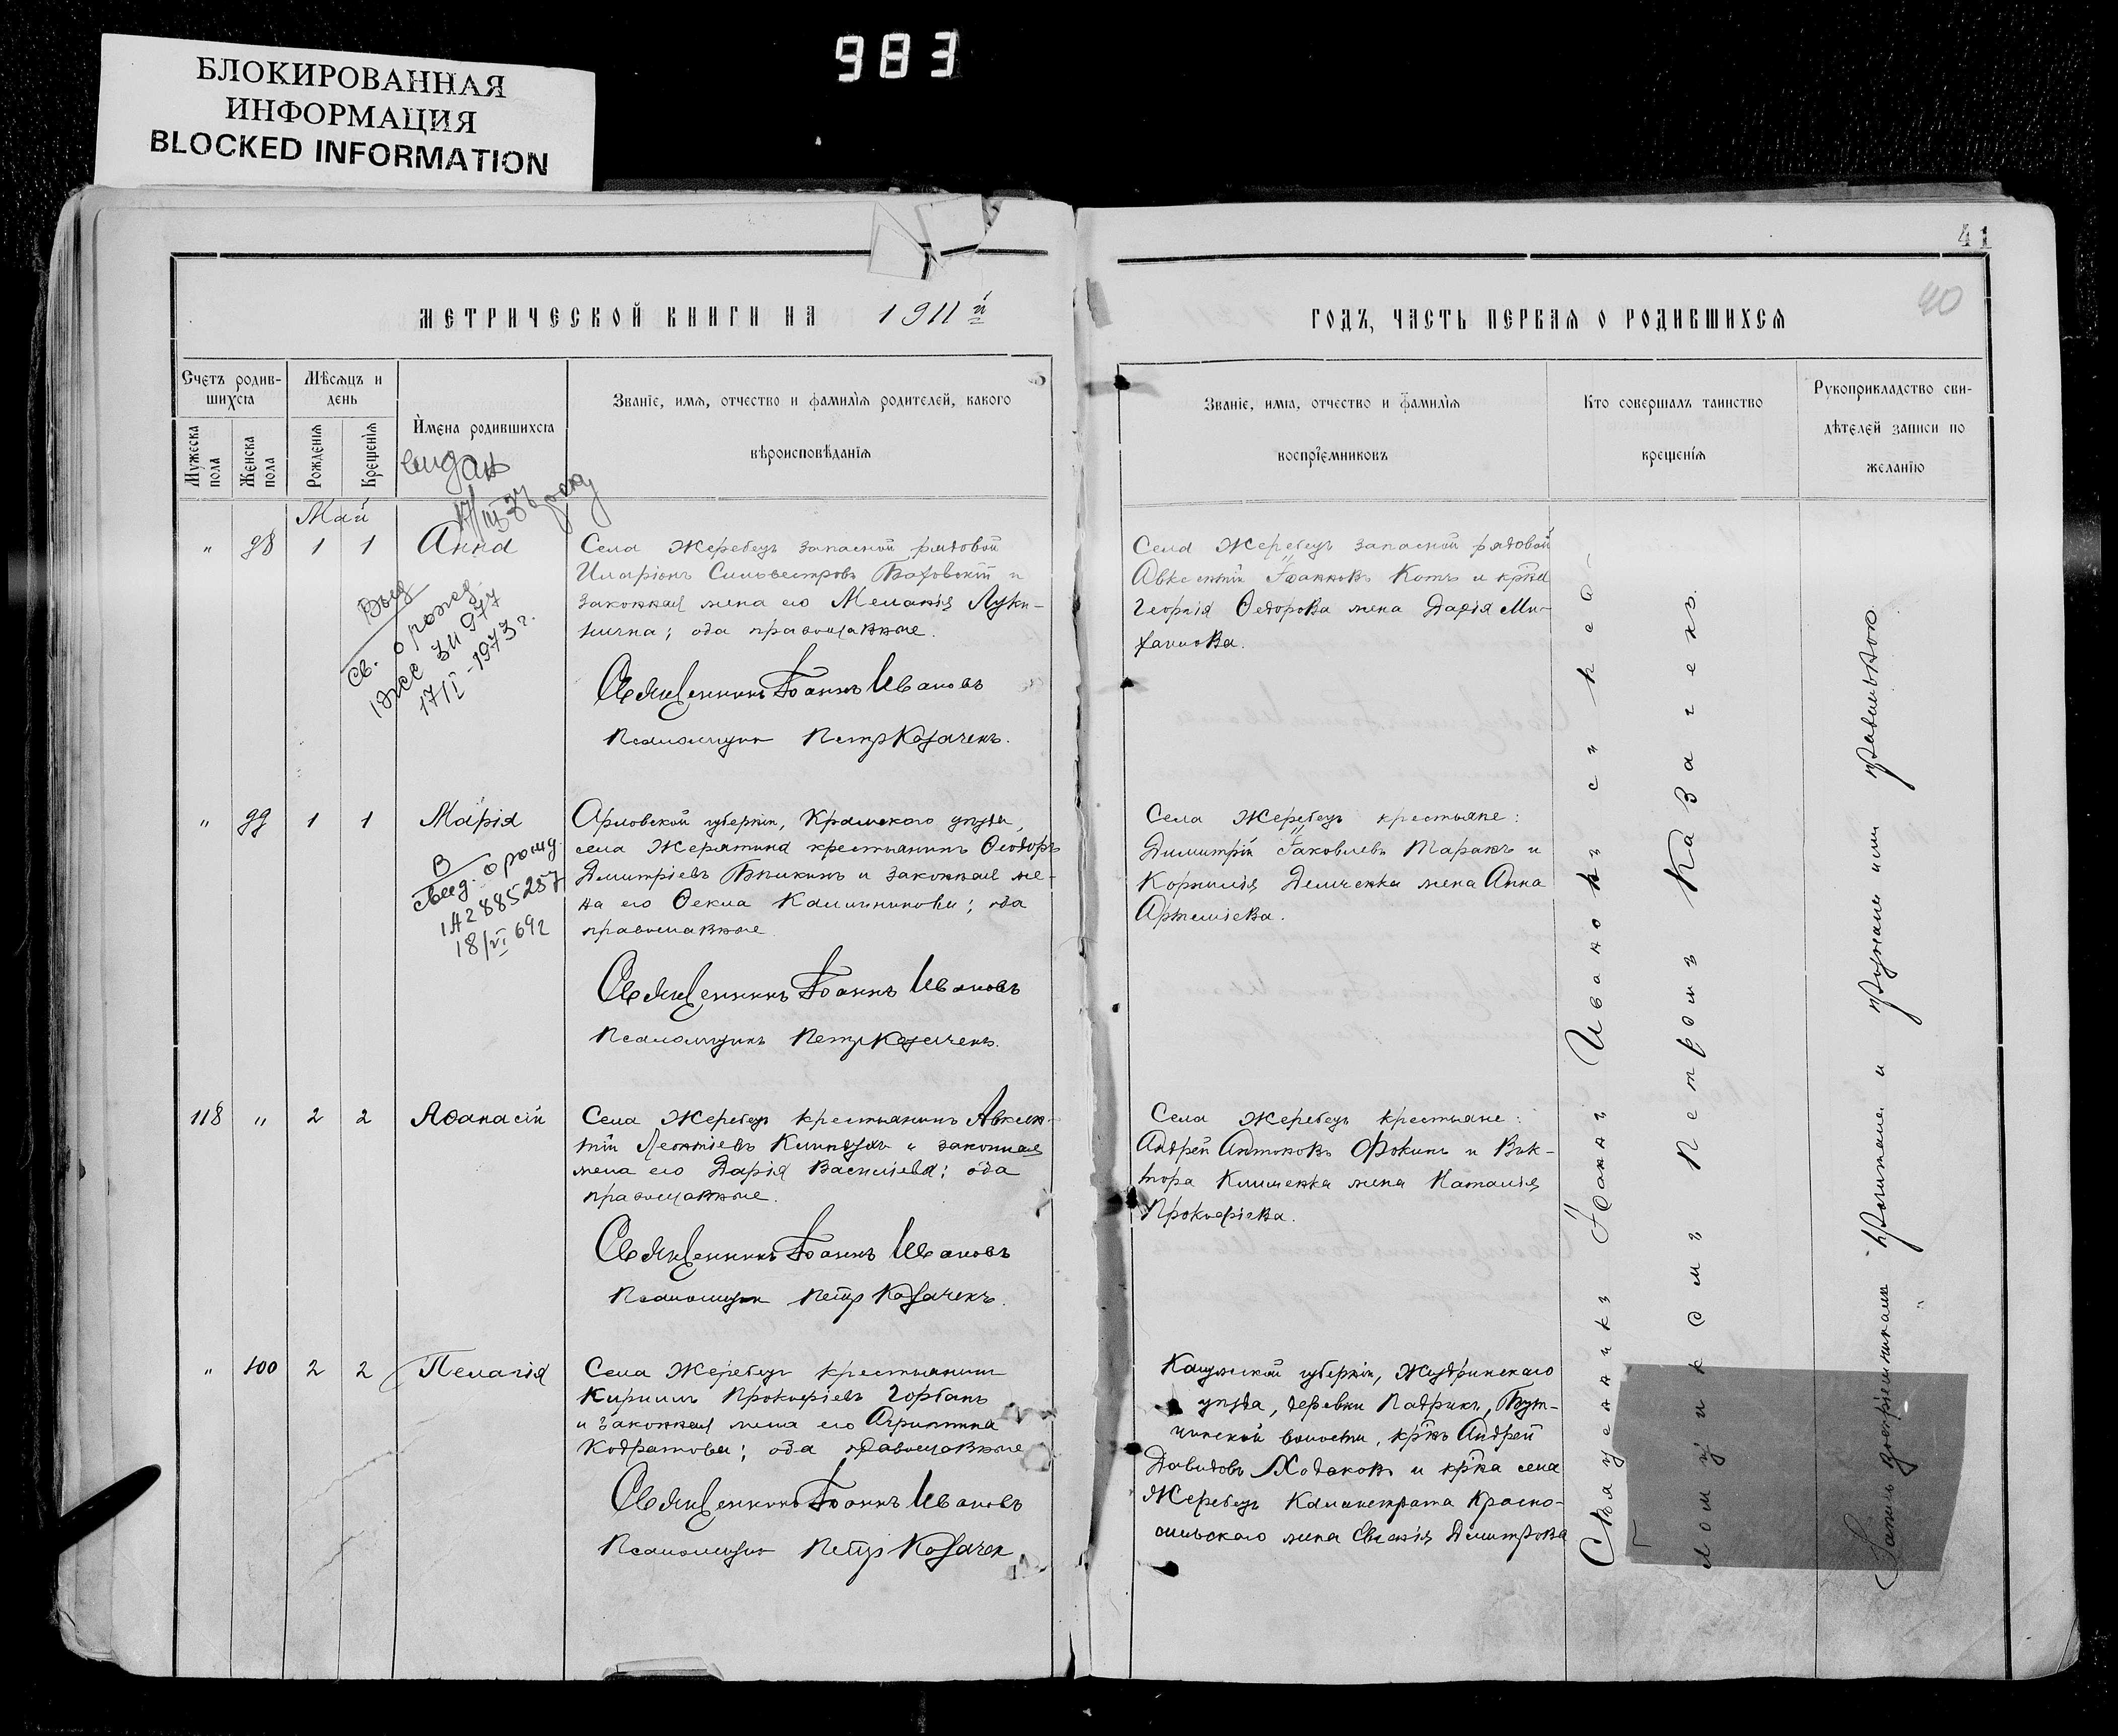 983
БЛОКИРОВАННАЯ
ИНФОРМАЦИЯ
BLOCKED INFORMATION
41
40
МЕТРИЧЕСКОЙ КНИГИ НА 1911й
ГОДЪ, ЧАСТЬ ПЕРВАЯ О РОДИВШИХСЯ
Счетъ родив-
шихся
Мужеска
пола
Женска
пола
Мѣсяцъ и
день
Рожденія
Крещенія
Имена родившихся
Званіе, имя, отчество и фамилія родителей, какого
вѣроисповѣданія
Званіе, имя, отчество и фамилія
воспріемниковъ
Кто совершалъ таинство
крещенія
Рукоприкладство сви-
дѣтелей записи по
желанію
Май
" 98 1 1 Анна
св. о рожд.
17/I-1973г.
Села Жеребецъ запасной рядовой
Иларіонъ Сильвестровъ и
законная жена его Меланія Луки-
нична; оба православные.
Священникъ Іоаннъ Ивановъ
Псаломщикъ Петръ Козаченъ.
Села Жеребецъ запасной рядовой
Авксентій Іоанновъ Котъ и кр̃на
Георгія Ѳедорова жена Дарія Ми-
хаилова.
" 99 1 1 Марія
В
свид. о рожд.
1А2885257
18/VI 69г
Орловской губерніи, Кромскаго уѣзда,
села Жерятина крестьянинъ Ѳеодоръ
Димитріевъ Бѣликинъ и законная же-
на его Ѳекла Каллиникова; оба
православные
Священникъ Іоаннъ Ивановъ
Псаломщикъ Петръ Козаченъ.
Села Жеребецъ крестьяне:
Димитрій Іаковлевъ Таранъ и
Корнилія Демченка жена Анна
Артеміева.
118 " 2 2 Аѳанасій
Села Жеребецъ крестьянинъ Авксен-
тій Леонтіевъ и законная
жена его Дарія Василіева; оба
православные.
Священникъ Іоаннъ Ивановъ
Псаломщикъ Петръ Козаченъ.
Села Жеребецъ крестьяне:
Андрей Антоновъ Фокинъ и Вик-
тора Клименка жена Наталія
Прокофіева.
" 100 2 2 Пелагія
Села Жеребецъ крестьянинъ
Кириллъ Прокофіевъ Горбань
и законная жена его Агриппина
Кодратова; оба православные
Священникъ Іоаннъ Ивановъ
Псаломщикъ Петръ Козаченъ
Калужской губерніи, Жиздринскаго
уѣзда, деревни Падрикъ, Бут-
чинской волости, кр̃нъ Андрей
Давидовъ Ходаковъ и кр̃на села
Жеребецъ Калистрата Красно-
сильскаго жена Евгенія Димитрова
Священникъ Іоаннъ Ивановъ съ пса-
ломщикомъ Петромъ Казаченко.